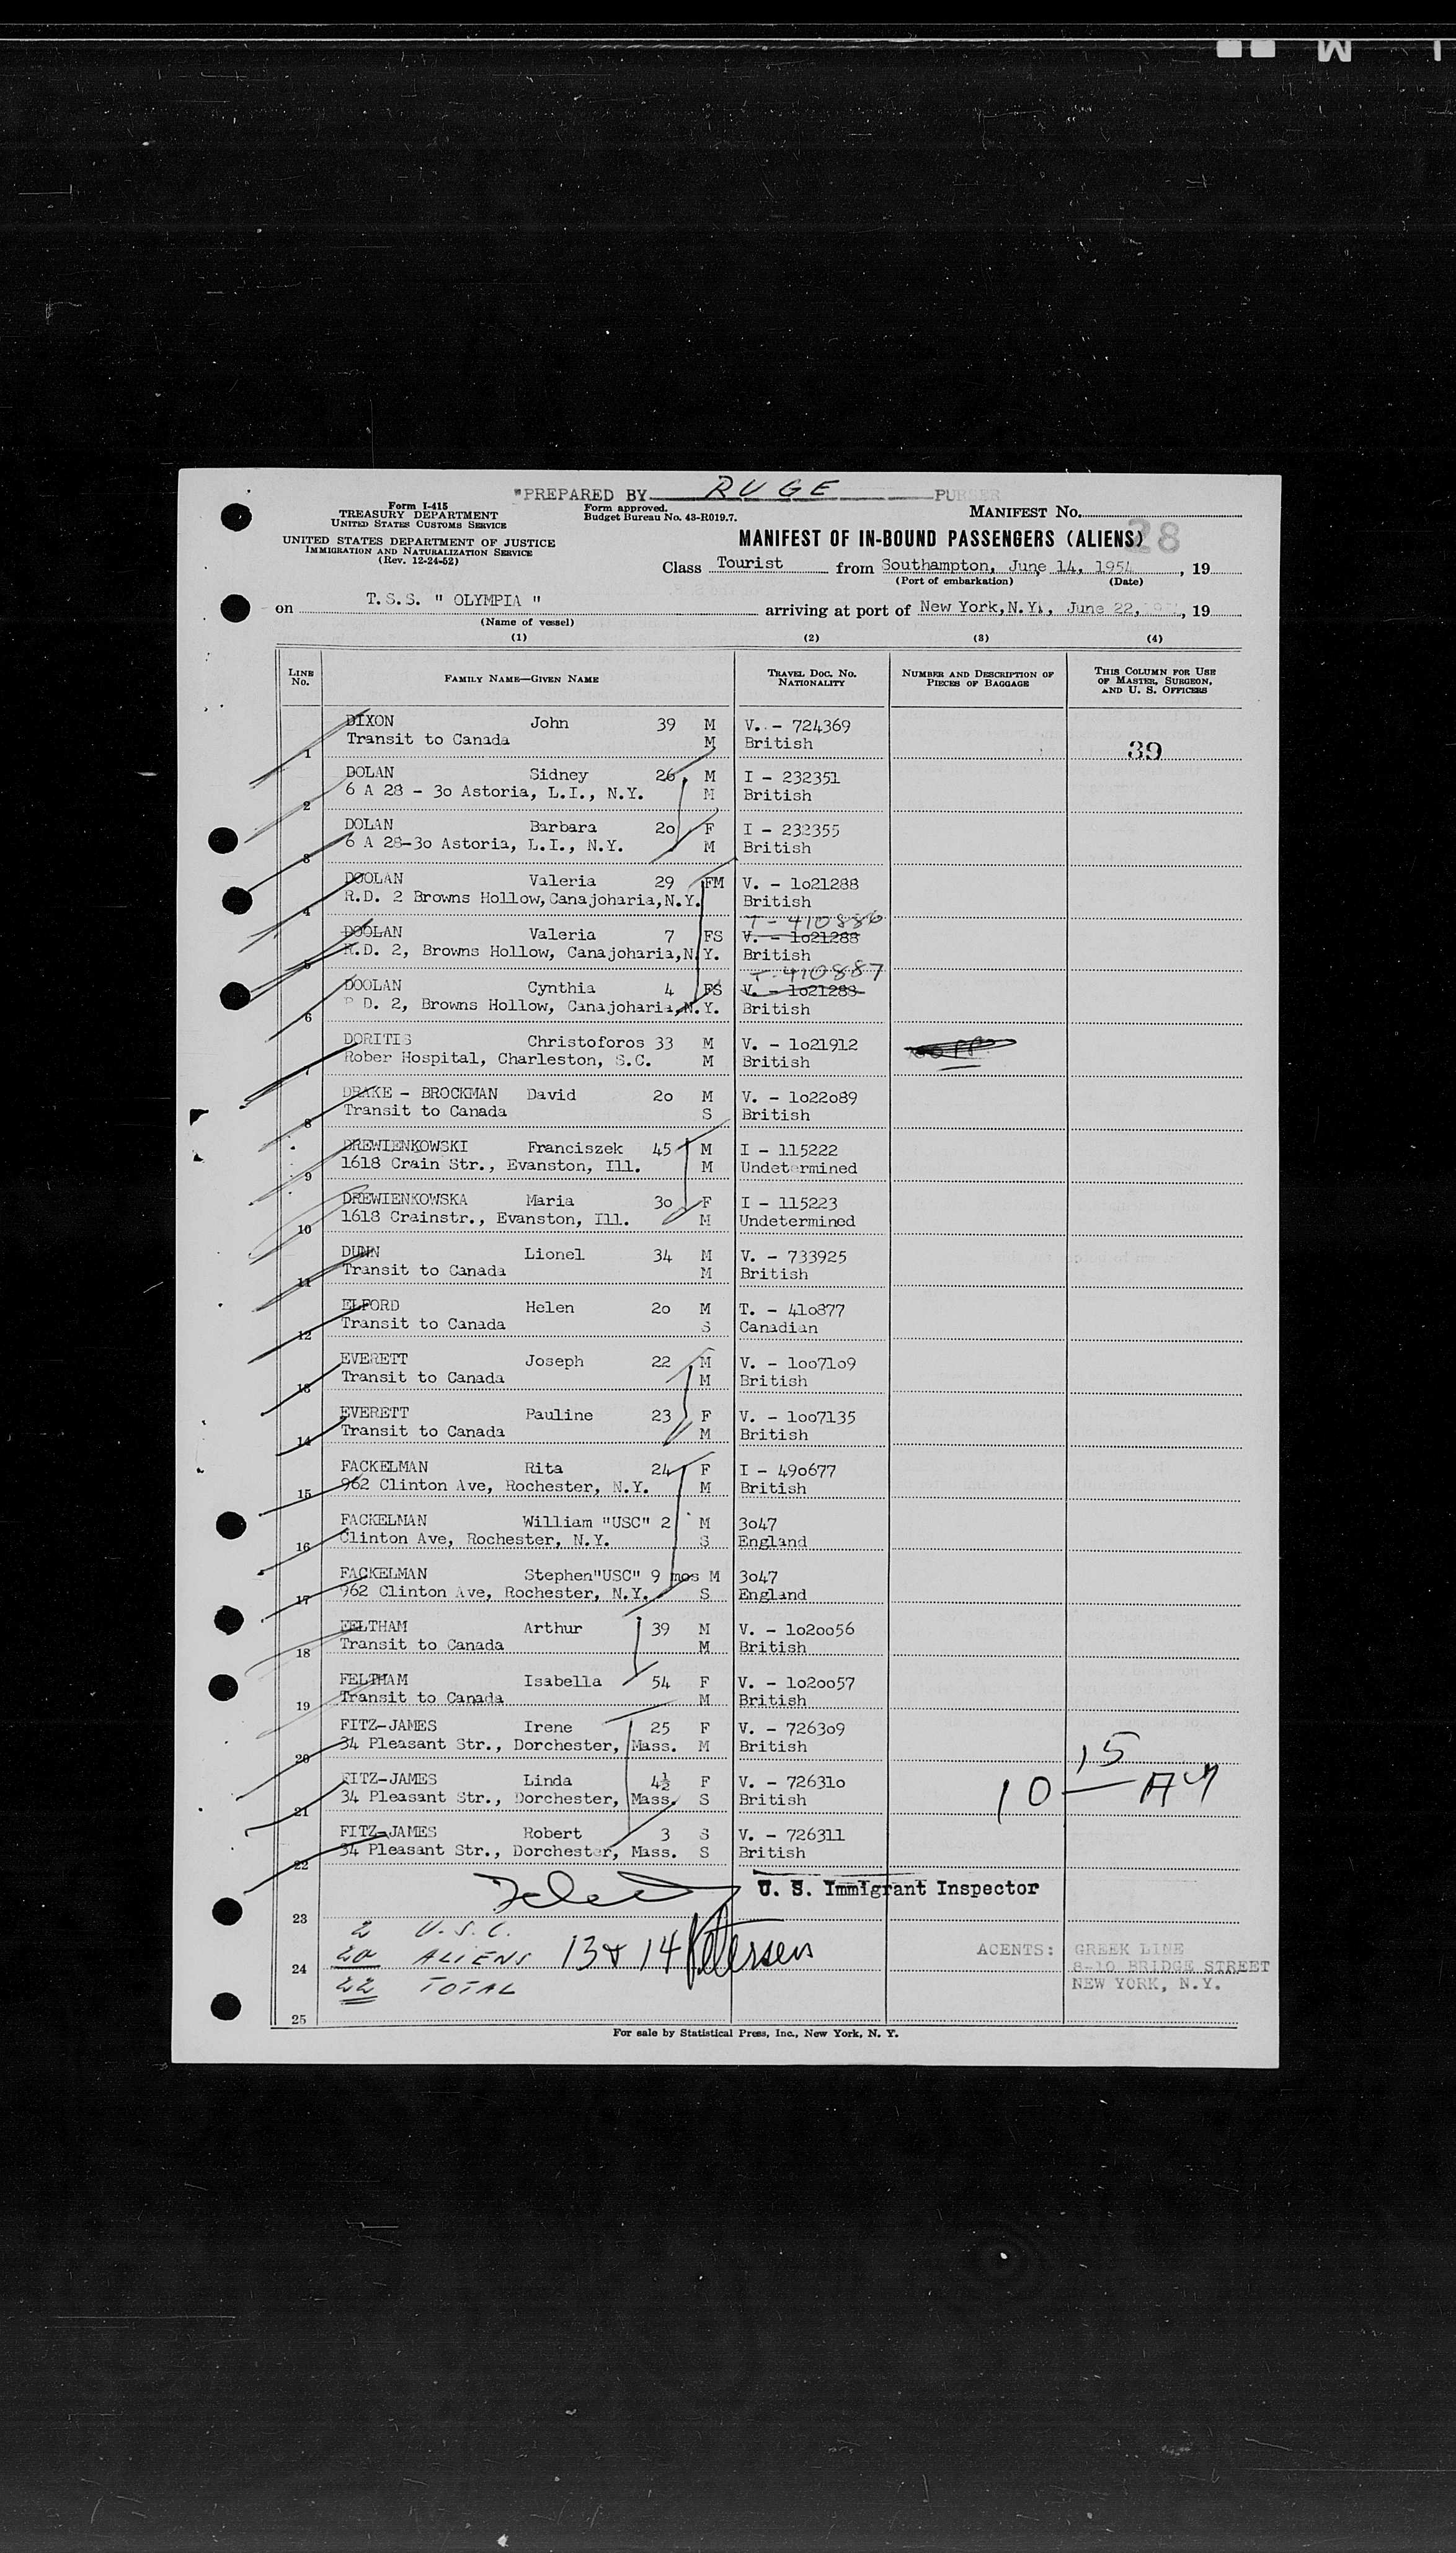 "PREPARED BY RUGE PURSER
Form I-415
TREASURY DEPARTMENT
UNITED STATES CUSTOMS SERVICE
Form approved.
Budget Bureau No. 43-R019.7.
MANIFEST No.
28
UNITED STATES DEPARTMENT OF JUSTICE
IMMIGRATION AND NATURALIZATION SERVICE
(Rev. 12-24-52)
MANIFEST OF IN-BOUND PASSENGERS (ALIENS)
Class Tourist from Southampton, June 14, 1954, 19
(Port of embarkation) (Date)
on T.S.S. " OLYMPIA " arriving at port of New York, N.Y., June 22, , 19
(Name of vessel)
(1) (2) (3) (4)
LINE No. FAMILY NAME—GIVEN NAME TRAVEL DOC. NO. NATIONALITY NUMBER AND DESCRIPTION OF PIECES OF BAGGAGE THIS COLUMN FOR USE OF MASTER, SURGEON, AND U. S. OFFICERS
DIXON John 39 M V. - 724369
1 Transit to Canada M British 39
DOLAN Sidney 26 M I - 232351
2 6 A 28 - 3o Astoria, L.I., N.Y. M British
DOLAN Barbara 2o F I - 232355
3 6 A 28-3o Astoria, L.I., N.Y. M British
DOOLAN Valeria 29 FM V. - 1o21288
4 R.D. 2 Browns Hollow, Canajoharia, N.Y. British
T - 410886
DOOLAN Valeria 7 FS V. - 1o21288
5 R.D. 2, Browns Hollow, Canajoharia, N.Y. British
T - 410887
DOOLAN Cynthia 4 FS V. - 1o21288
6 R D. 2, Browns Hollow, Canajoharia, N.Y. British
DORITIS Christoforos 33 M V. - 1o21912
7 Rober Hospital, Charleston, S.C. M British
DRAKE - BROCKMAN David 2o M V. - 1o22o89
8 Transit to Canada S British
DREWIENKOWSKI Franciszek 45 M I - 115222
9 1618 Crain Str., Evanston, Ill. M Undetermined
DREWIENKOWSKA Maria 3o F I - 115223
10 1618 Crainstr., Evanston, Ill. M Undetermined
DUNN Lionel 34 M V. - 733925
11 Transit to Canada M British
ELFORD Helen 2o M T. - 41o877
12 Transit to Canada S Canadian
EVERETT Joseph 22 M V. - 1oo71o9
13 Transit to Canada M British
EVERETT Pauline 23 F V. - 1oo7135
14 Transit to Canada M British
FACKELMAN Rita 24 F I - 49o677
15 962 Clinton Ave, Rochester, N.Y. M British
FACKELMAN William "USC" 2 M 3o47
16 Clinton Ave, Rochester, N.Y. S England
FACKELMAN Stephen"USC" 9 mos M 3o47
17 962 Clinton Ave, Rochester, N.Y. S England
FELTHAM Arthur 39 M V. - 1o2oo56
18 Transit to Canada M British
FELTHAM Isabella 54 F V. - 1o2oo57
19 Transit to Canada M British
FITZ-JAMES Irene 25 F V. - 7263o9
20 34 Pleasant Str., Dorchester, Mass. M British
15
FITZ-JAMES Linda 4½ F V. - 72631o
10 —
21 34 Pleasant Str., Dorchester, Mass. S British
FITZ-JAMES Robert 3 S V. - 726311
22 34 Pleasant Str., Dorchester, Mass. S British
U. S. Immigrant Inspector
23
2 U.S.C.
24 20 ALIENS 13 & 14 Petersen
22 TOTAL
AGENTS: GREEK LINE
8-10 BRIDGE STREET
NEW YORK, N.Y.
25
For sale by Statistical Press, Inc., New York, N. Y.